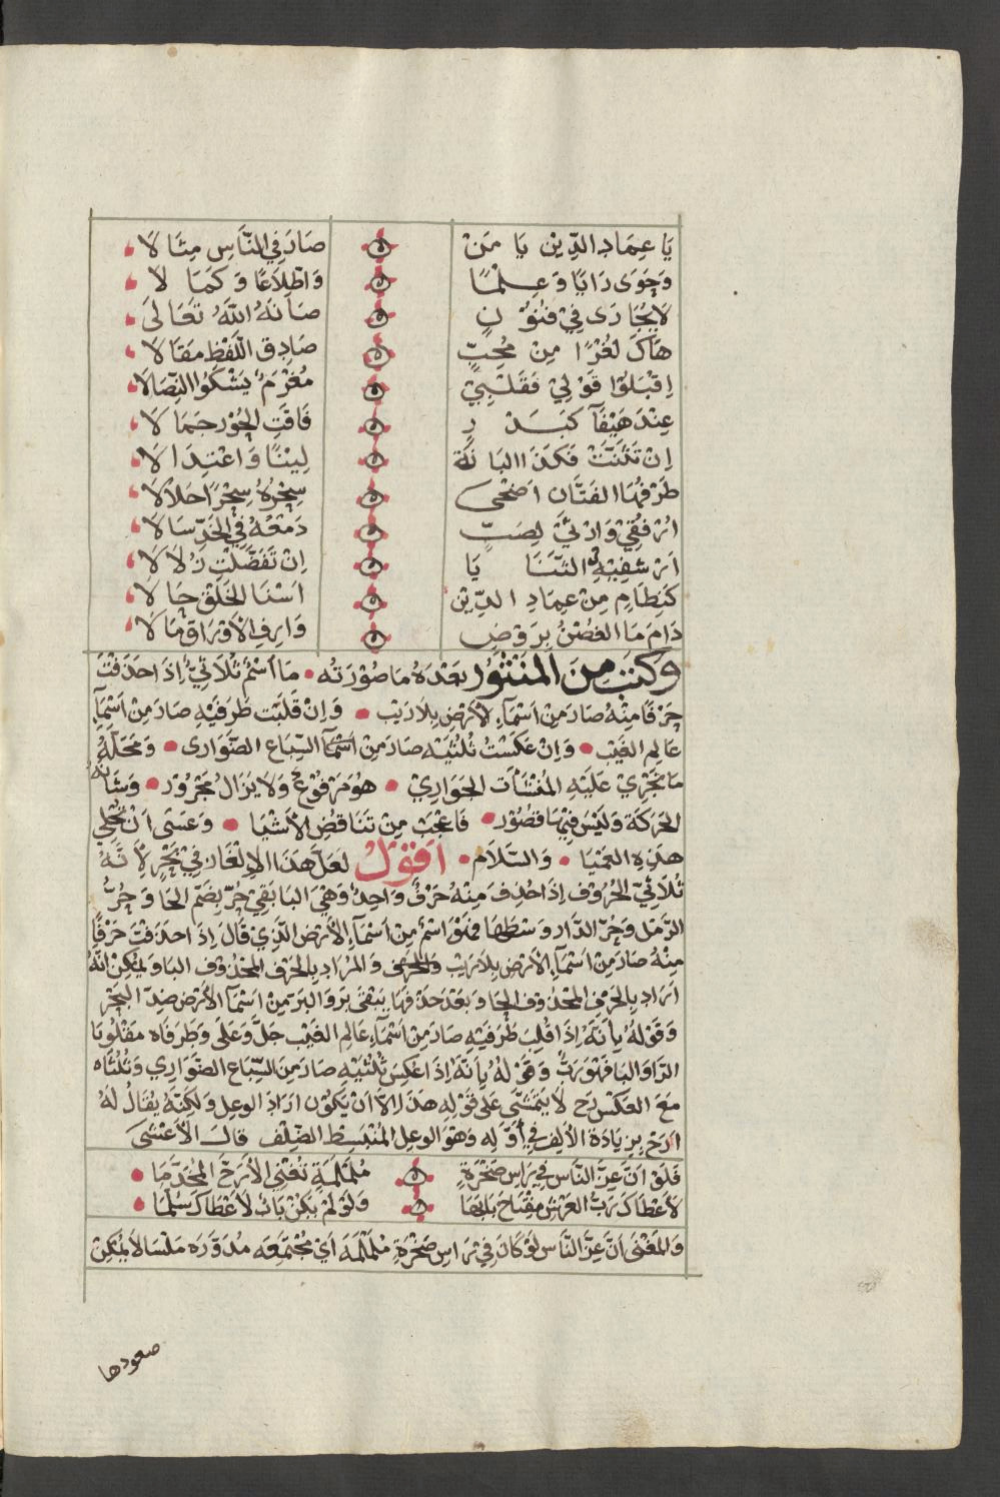 يَا عِمَادَ الدِّيْنِ يَا مَنْ ۞ صَارَ فِي النَّاسِ مِثَالَا
وَحَوَى رَايًا وَعِلْمًا ۞ وَاطِّلَاعًا وَكَمَالَا
لَا يُجَارَى فِيْ فُنُوْنٍ ۞ صَانَهُ اللّٰهُ تَعَالَى
هَاكَ لُغْزًا مِنْ مُحِبٍّ ۞ صَادِقِ اللَّفْظِ مَقَالَا
اِقْبَلُوْا قَوْلِيْ فَقَلْبِيْ ۞ مُغْرَمٌ يَشْكُوْا النِّصَالَا
عِنْدَ هَيْفَآ كَبَدْرٍ ۞ فَاقَتِ الْحُوْرَ جَمَالَا
اِنْ تَثَنَّتْ فَكَذَا الْبَانَة ۞ لِيْنًا وَاعْتِدَالَا
طَرْفُهَا الفَتَّان اَضْحَى ۞ سِحْرُهُ سِحْرًا حَلَالَا
اُرْفُقِيْ وَارْثِيْ لِصَبٍّ ۞ دَمْعُهُ فِي الخَدِّ سَالَا
اَرْشِفِيْهِ الثَّنَايَا ۞ اِنْ تَفَضَّلْتِ زُلَالَا
كَنِظَامٍ مِنْ عِمَادِ الدِّيْن ۞ اَسْنَا الخَلْقِ حَالَا
دَامَ مَا الغُصْنُ بِرَوْضٍ ۞ وَارِفِ الْاَوْرَاقِ مَالَا
وكتب من المَنْثُوْر بَعْدَهُ مَا صُوْرَتُه • مَا اسْمٌ ثُلَاثِيٌّ اِذَا حَذَفْتَ
حَرْفًا مِنْهُ صَارَ مِنْ اَسْمَآءِ الْاَرْضِ بِلَا رَيْب • وَاِنْ قَلَبْت طَرَفَيْهِ صَارَ مِنْ اَسْمَآءِ
عَالِمِ الغَيْب • وَاِنْ عَكَسْتَ ثُلُثَيْهِ صَارَ مِنْ اَسْمَآ السِّبَاعِ الضَّوَارى • وَمَحَلّهُ
مَا تَجْرِيْ عَلَيْهِ المُنْشَآت الجَوَارِيْ • هُوَ مَرْفُوْعٌ وَلَا يَزَالُ مَجْرُوْر • وَشَانُه
الحَرَكَة وَلَيْسَ فِيْهَا قُصُوْر • فَاعْجَبْ مِنْ تَنَاقُضِ الْاَشْيَا • وَعَسَى اَنْ تُجْلِي
هَذِهِ العَمْيَا • وَالسَّلَام • اَقُوْلُ لَعَلَّ هَذَا الْاِلْغَازَ فِيْ بَحْرٍ لِاَنَّهُ
ثُلَاثِيّ الحُرُوف اِذَا حُذِفَ مِنْهُ حَرْفٌ وَاحِدٌ وَهِيَ البَا بَقِيَ حُرٌّ بِضَمِّ الحَا وَحُرُّ
الرَّمْل وَحُرّ الدَّار وَسَطهَا فَهُوَ اسْمٌ مِنْ اَسْمَآءِ الْاَرْضِ الَّذِيْ قَالَ اِذَا حَذَفْتَ حَرْفًا
مِنْهُ صَارَ مِنْ اَسْمَآءِ الْاَرْضِ بِلَا رَيْب وَالمُرَاد بِالحَرْفِ المَحْذُوْفِ البَا وَيُمْكِنُ اَنَّهُ
اَرَادَ بِالحَرْفِ المَحْذُوْف الحَا وَبَعْدَ حَذْفِهَا يَبْقَى بَر وَالبَرّ مِنْ اَسْمَآ الْاَرْض ضِدّ البَحْر
وَقَوْلهُ بِاَنَهُ اِذَا قُلِبَ طَرَفَيْهِ صَارَ مِنْ اَسْمَآءِ عَالِمِ الغَيْب جَلَّ وَعَلَى وَطَرَفَاه مَقْلُوبَا
الرَّا وَالبَا فَهُوَ رَبٌّ وَقَوْلُهُ بِاَنَّهُ اِذَا عُكِسَ ثُلُثَيْهِ صَارَ مِنَ السِّبَاع الضَّوَارِي وَثُلُثَاه
مَعَ العَكْس رَح لَا يَتَمَشَّى عَلَى قَوْلِهِ هَذَا اِلَّا اَنْ يَكُوْن اَرَادَ الوعِل وَلَكِنَّهُ يُقَالُ لَهُ
اَرَح بِزِيَادَةِ الْاَلِف فِيْ اَوَّلِهِ وَهُوَ الوعِل المُنْبَسِطُ الظِّلْف قَالَ الْاَعْشَى
فَلَوْ اَنَّ عِزَّ النَّاسِ فِيْ رَاسِ صَخْرَةٍ ۞ مُلَمْلَمَةٍ تُعْيِي الْاَرَحَّ المُخَدَّمَا •
لَاَعْطَاكَ رَبُّ العَرْشِ مِفْتَاحَ بَابِهَا ۞ وَلَوْ لَمْ يَكُنْ بَابٌ لَاَعْطَاكَ سُلَّمَا •
وَالمَعْنَى اَنَّ عِزَّ النَّاسِ لَوْ كَانَ فِيْ رَاسِ صَخْرَةٍ مُلَمْلَمَه اَيْ مُجْتَمِعَه مُدَوَّرَه مَلْسَا لَا يُمْكِنُ
صعودها